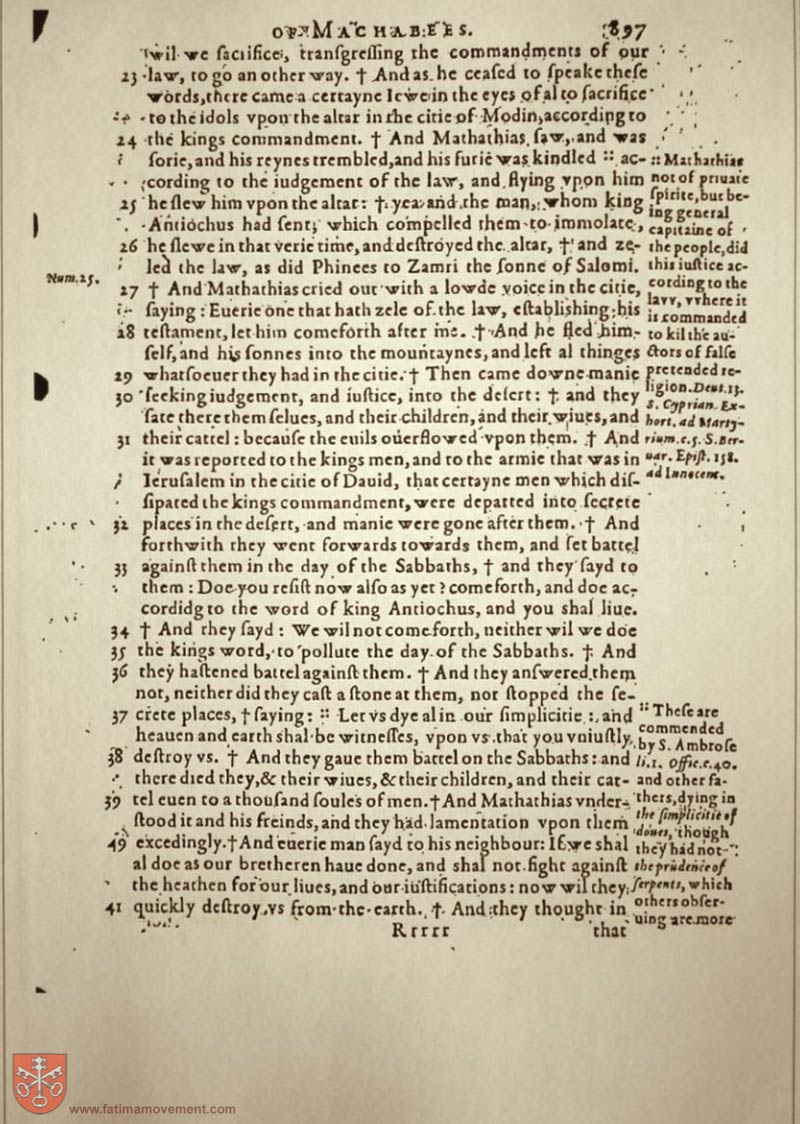 OF MACHABEES. 897
wil we sacrifice, transgressing the commandments of our
23 law, to go an other way. † And as he ceased to speake these
words, there came a certayne Iewe in the eyes of al to sacrifice
to the idols vpon the altar in the citie of Modin, according to
24 the kings commandment. † And Mathathias saw, and was
sorie, and his reynes trembled, and his furie was kindled :: ac-
cording to the iudgement of the law, and flying vpon him
25 he slew him vpon the altar: † yea and the man, whom king
Antiochus had sent, which compelled them to immolate,
26 he slewe in that verie time, and destroyed the altar, † and ze-
led the law, as did Phinees to Zamri the sonne of Salomi.
27 † And Mathathias cried out with a lowde voice in the citie,
saying: Euerie one that hath zele of the law, establishing his
28 testament, let him comeforth after me. † And he fled him-
self, and his sonnes into the mountaynes, and left al thinges
29 whatsoeuer they had in the citie. † Then came downe manie
30 seeking iudgement, and iustice, into the desert: † and they
sate there them selues, and their children, and their wiues, and
31 their cattel: because the euils ouerflowed vpon them. † And
it was reported to the kings men, and to the armie that was in
Ierusalem in the citie of Dauid, that certayne men which dis-
sipated the kings commandment, were departed into secrete
32 places in the desert, and manie were gone after them. † And
forthwith they went forwards towards them, and set battel
33 against them in the day of the Sabbaths, † and they sayd to
them: Doe you resist now also as yet? comeforth, and doe ac-
cordidg to the word of king Antiochus, and you shal liue.
34 † And they sayd: We wil not comeforth, neither wil we doe
35 the kings word, to pollute the day of the Sabbaths. † And
36 they hastened battel against them. † And they answered them
not, neither did they cast a stone at them, nor stopped the se-
37 crete places, † saying: :: Let vs dye al in our simplicitie: and
heauen and earth shal be witnesses, vpon vs that you vniustly
38 destroy vs. † And they gaue them battel on the Sabbaths: and
there died they, & their wiues, & their children, and their cat-
39 tel euen to a thousand soules of men. † And Mathathias vnder-
stood it and his freinds, and they had lamentation vpon them
40 excedingly. † And euerie man sayd to his neighbour: If we shal
al doe as our bretheren haue done, and shal not fight against
the heathen for our liues, and our iustifications: now wil they
41 quickly destroy vs from the earth. † And they thought in
Rrrrr that
Num. 25.
:: Mathathias
not of priuate
spirite, but be-
ing general
capitaine of
the people, did
this iustice ac-
cording to the
law, where it
is commanded
to kil the au-
ctors of false
pretended re-
ligion. Deut. 13.
S. Cyprian. Ex-
hort. ad Marty-
rium. c. 5. S. Ber-
nar. Epist. 158.
ad Innocent.
:: These are
commended
by S. Ambrose
li. 1. Offic. c. 40.
and other fa-
thers, dying in
the simplicitie of
doues, though
they had not
the prudence of
serpents, which
others obser-
uing are more
www.fatimamovement.com